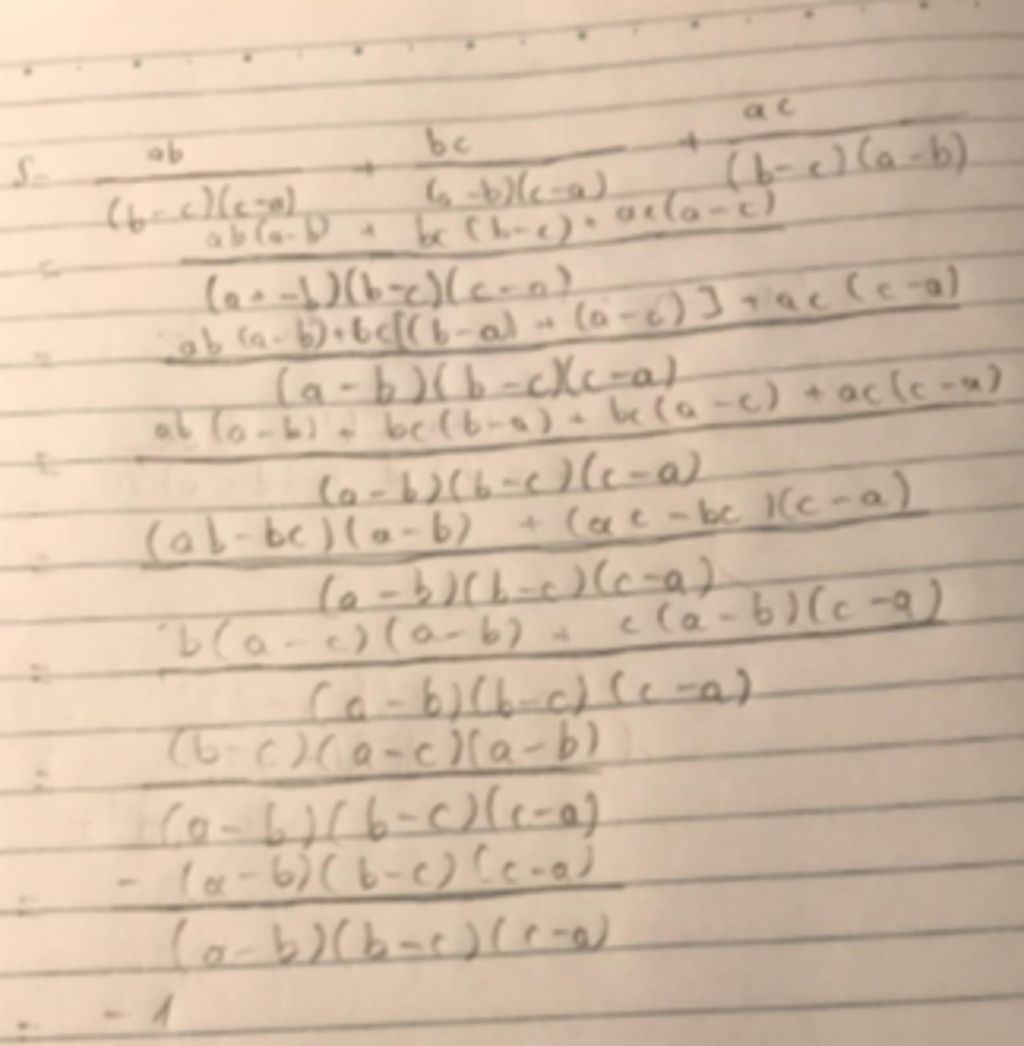 S = ab / (b-c)(c-a) + bc / (a-b)(c-a) + ac / (b-c)(a-b)
= ab(a-b) + bc(b-c) + ac(a-c) / (a-b)(b-c)(c-a)
= ab(a-b) + bc[(b-a) + (a-c)] + ac(c-a) / (a-b)(b-c)(c-a)
= ab(a-b) + bc(b-a) + bc(a-c) + ac(c-a) / (a-b)(b-c)(c-a)
= (ab-bc)(a-b) + (ac-bc)(c-a) / (a-b)(b-c)(c-a)
= b(a-c)(a-b) + c(a-b)(c-a) / (a-b)(b-c)(c-a)
= (b-c)(a-c)(a-b) / (a-b)(b-c)(c-a)
= -(a-b)(b-c)(c-a) / (a-b)(b-c)(c-a)
= -1